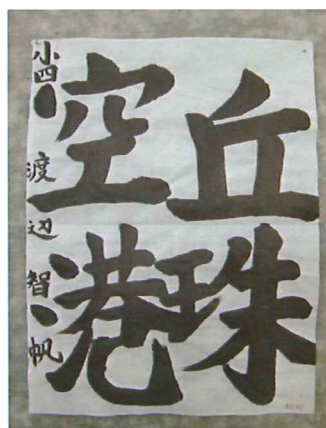 丘珠
空港
小四 渡辺智帆